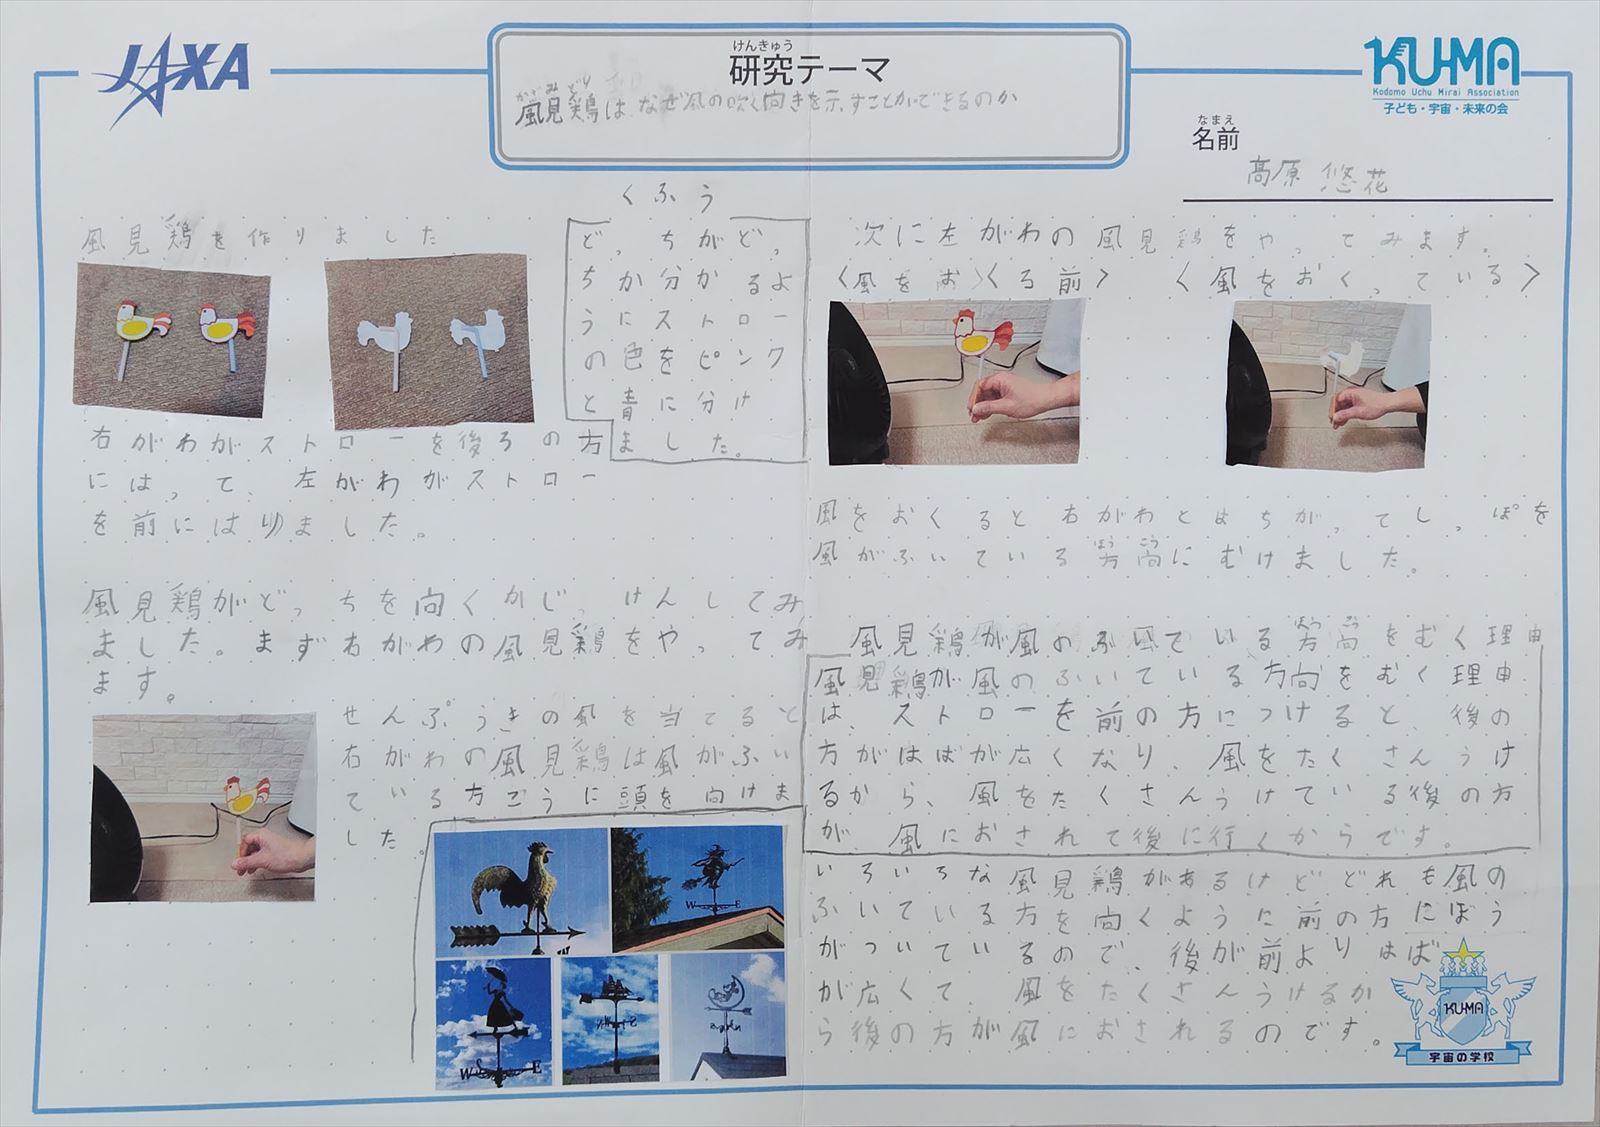 JAXA
けんきゅう
研究テーマ
かざみどり
風見鶏はなぜ風の吹く向きを示すことができるのか
KUMA
Kodomo Uchu Mirai Association
子ども・宇宙・未来の会
なまえ
名前
高原 悠花
風見鶏を作りました
くふう
どっちがどっ
ちか分かるよ
うにストロー
の色をピンク
と青に分け
ました。
右がわがストローを後ろの方
にはって、左がわがストロー
を前にはりました。
風見鶏がどっちを向くかじっけんしてみ
ました。まず右がわの風見鶏をやってみ
ます。
せんぷうきの風を当てると
右がわの風見鶏は風がふい
ている方こうに頭を向けま
した。
W E
W
W S E
次に左がわの風見鶏をやってみます。
〈風をおくる前〉 〈風をおくっている〉
風をおくると右がわとはちがってしっぽを
ほう こう
風がふいている方向にむけました。
ほう こう
風見鶏が風のふいている方向をむく理由
風見鶏が風のふいている方向をむく理由
は、ストローを前の方につけると、後の
方がはばが広くなり、風をたくさんうけ
るから、風をたくさんうけている後の方
が、風におされて後に行くからです。
いろいろな風見鶏があるけどどれも風の
ふいている方を向くように前の方にぼう
がついているので、後が前よりはば
が広くて、風をたくさんうけるか
ら後の方が風におされるのです。
KUMA
宇宙の学校